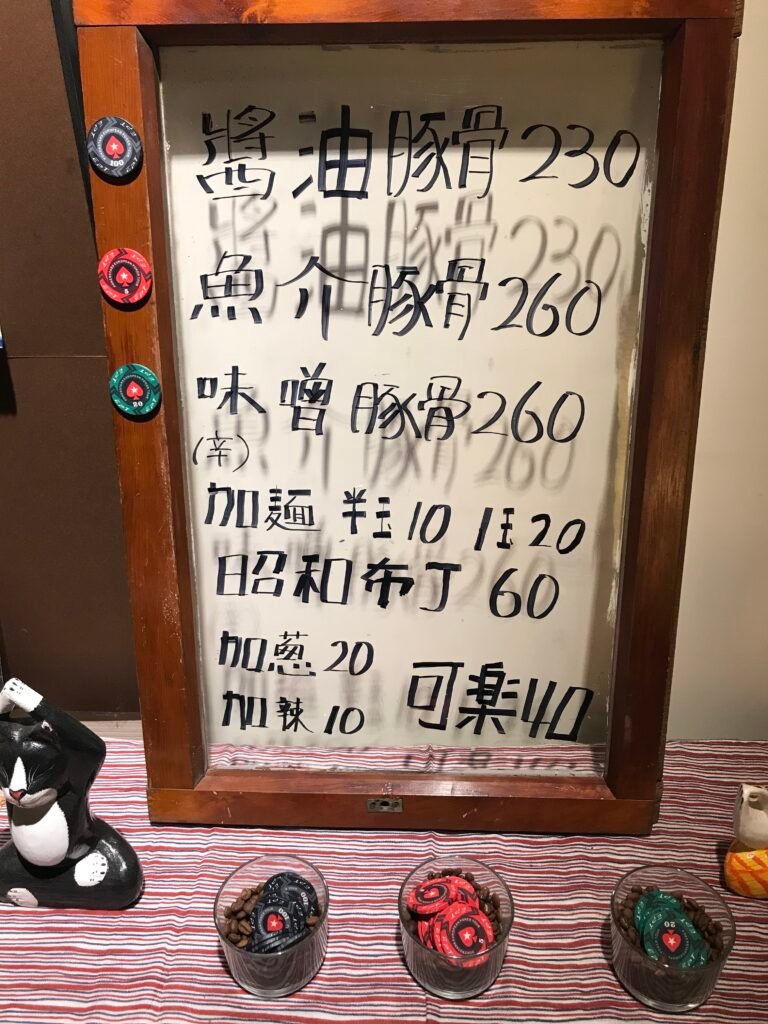 醬油豚骨230
魚介豚骨260
味噌豚骨260
(辛)
加麺 半玉10 1玉20
昭和布丁 60
加葱20
加辣10
可楽40
100
5
20
20